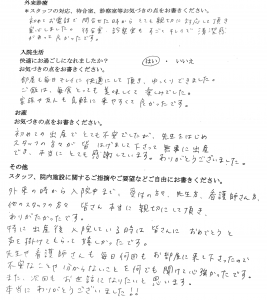 外来診療
※スタッフの対応、待合室、診察室等お気づきの点をお書きください。
初めてお電話で問合せた時からとても親切に対応して頂き
安心しました。待合室・診察室もすごくキレイで清潔感
があって良かったです。
入院生活
快適にお過ごしになれましたか？ はい ・ いいえ
お気づきの点をお書きください。
部屋も毎日キレイに快適にして頂き、ゆっくりできました。
ご飯は、毎食とっても美味しくて
家族や友人も気軽に来やすくて良かったです。
お産
お気づきの点をお書きください。
初めての出産でとても不安でしたが、先生をはじめ
スタッフの方々が励まして下さって無事に出産
でき、本当にとても感謝しています。ありがとうございました。
その他
スタッフ、院内施設に関するご指摘やご要望などご自由にお書きください。
外来の時から入院中まで、受付の方々、先生方、看護師さん方、
他のスタッフの方々 皆さん本当に親切にして頂き、
ありがたかったです。
特に出産後入院している時は皆さんに おめでとう と
声を掛けてもらって嬉しかったです。
先生や看護師さんも毎日何回もお部屋に来て下さったので
不安なことや分からないことも何でも聞けて心強かったです。
また、次回もお世話になりたいと思います。
本当にありがとうございました!!